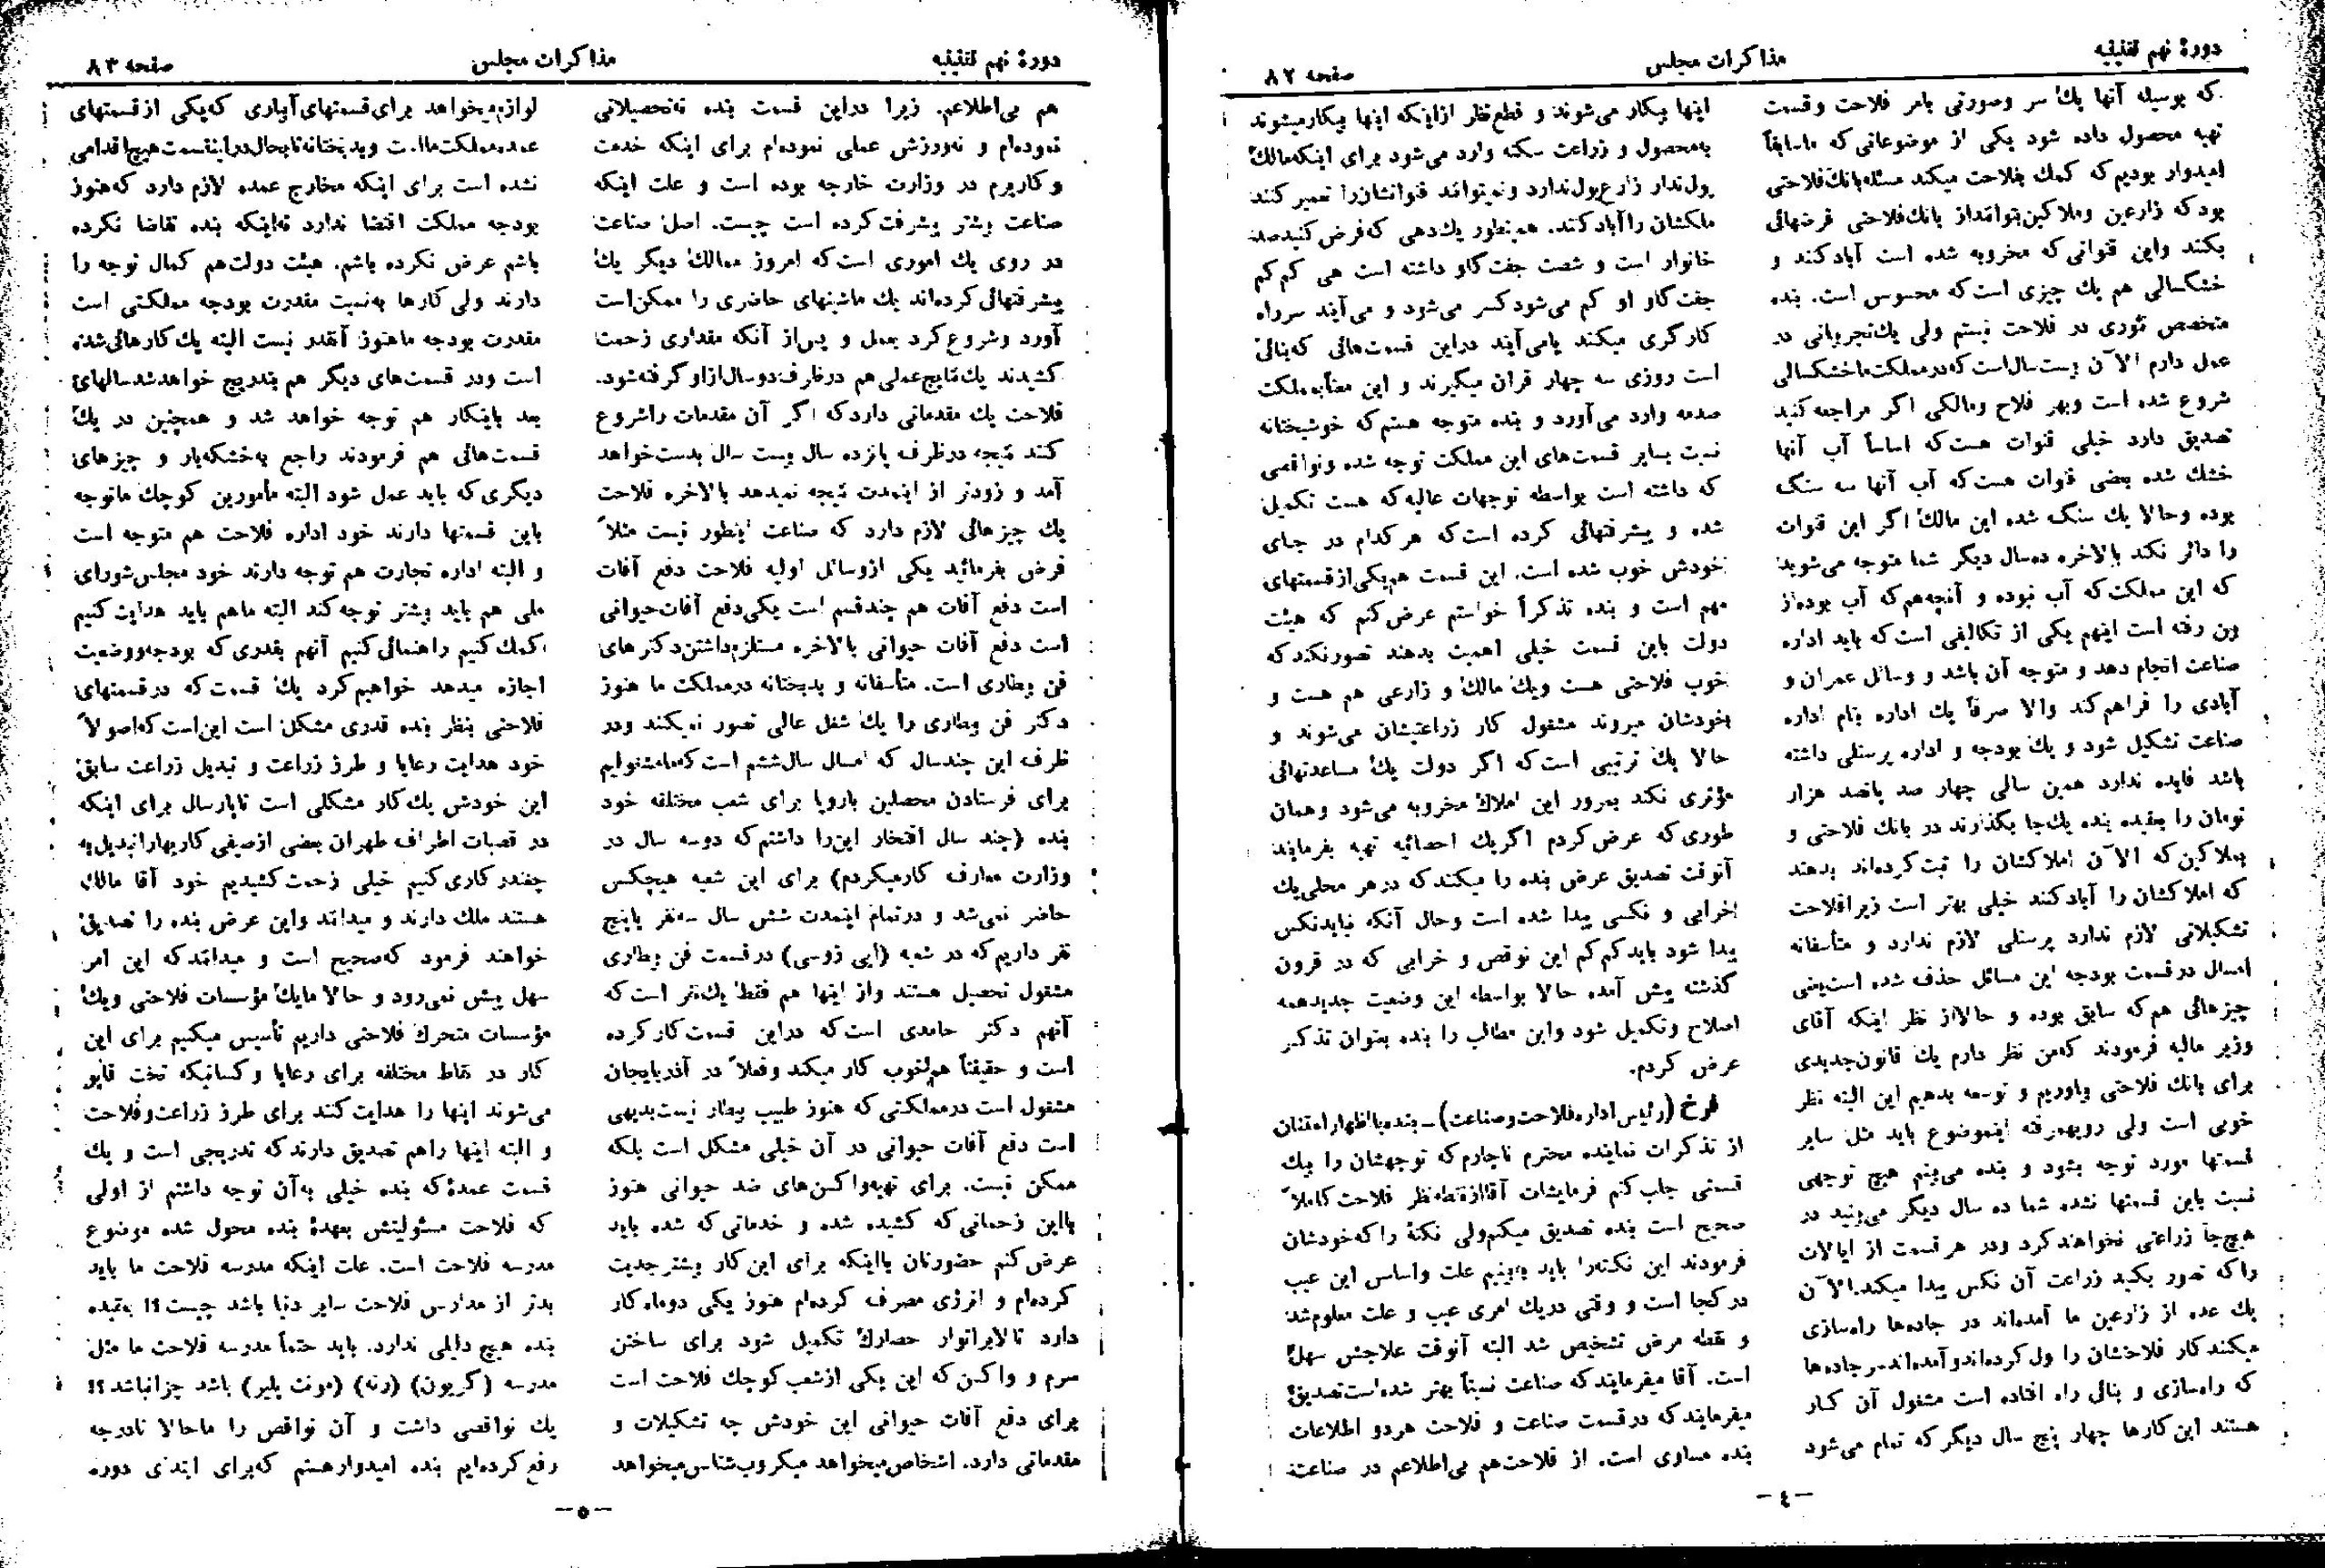 دورهٔ نهم تقنینیه
مذاکرات مجلس
صفحه ۸۲
که بوسیله آنها یك سر وصورتی بامر فلاحت وقسمت
تهیه محصول داده شود یکی از موضوعاتی که ماسابقاً
امیدوار بودیم که کمك بفلاحت میکند مسئله بانك فلاحتی
بود که زارعین وملاکین بتوانند از بانك فلاحتی قرضهائی
بکنند واین قنواتی که مخروبه شده است آباد کنند و
خشکسالی هم یك چیزی است که محسوس است. بنده
متخصص تئوری در فلاحت نیستم ولی یك تجربیاتی در
عمل دارم الآن بیست سال است که در مملکت ما خشکسالی
شروع شده است وبهر فلاح ومالکی اگر مراجعه کنید
تصدیق دارد خیلی قنوات هست که اساساً آب آنها
خشك شده بعضی قنوات هست که آب آنها سه سنگ
بوده وحالا یك سنگ شده این مالك اگر این قنوات
را دائر نکند بالاخره ده سال دیگر شما متوجه می‌شوید
که این مملکت که آب نبوده و آنچه هم که آب بوده از
بین رفته است اینهم یکی از تکالیفی است که باید اداره
صناعت انجام دهد و متوجه آن باشد و وسائل عمران و
آبادی را فراهم کند والا صرفاً یك اداره بنام اداره
صناعت تشکیل شود و یك بودجه و اداره پرسنلی داشته
باشد فایده ندارد همین سالی چهار صد پانصد هزار
تومان را بعقیده بنده یك جا بگذارند در بانك فلاحتی و
بملاکین که الآن املاکشان را ثبت کرده‌اند بدهند
که املاکشان را آباد کنند خیلی بهتر است زیرا فلاحت
تشکیلاتی لازم ندارد پرسنلی لازم ندارد و متأسفانه
امسال در قسمت بودجه این مسائل حذف شده است یعنی
چیزهائی هم که سابق بوده و حالا از نظر اینکه آقای
وزیر مالیه فرمودند که من نظر دارم یك قانون جدیدی
برای بانك فلاحتی بیاوریم و توسعه بدهیم این البته نظر
خوبی است ولی رویهمرفته اینموضوع باید مثل سایر
قسمتها مورد توجه بشود و بنده می‌بینم هیچ توجهی
نسبت باین قسمتها نشده شما ده سال دیگر می‌بینید در
هیچ جا زراعتی نخواهند کرد ودر هر قسمت از ایالات
را که تصور بکنید زراعت آن نکس پیدا میکند. الآن
یك عده از زارعین ما آمده‌اند در جاده‌ها راه سازی
میکنند کار فلاحتشان را ول کرده‌اند و آمده‌اند سر جاده‌ها
که راه سازی و بنائی راه افتاده است مشغول آن کار
هستند این کارها چهار پنج سال دیگر که تمام می‌شود
اینها بیکار می‌شوند و قطع نظر از اینکه اینها بیکار میشوند
به محصول و زراعت سکته وارد می‌شود برای اینکه مالك
پول ندارد زارع پول ندارد ونمیتوانند قنواتشان را تعمیر کنند
ملکشان را آباد کنند. همینطور یك دهی که فرض کنید صد
خانوار است و شصت جفت گاو داشته است هی کم کم
جفت گاو او کم می‌شود کسر می‌شود و می‌آیند سر راه
کارگری میکند یا می‌آیند در این قسمت‌هائی که بنائی
است روزی سه چهار قران میگیرند و این معناً بمملکت
صدمه وارد می‌آورد و بنده متوجه هستم که خوشبختانه
نسبت بسایر قسمت‌های این مملکت توجه شده و نواقصی
که داشته است بواسطه توجهات عالیه که هست تکمیل
شده و پیشرفتهائی کرده است که هر کدام در جای
خودش خوب شده است. این قسمت هم یکی از قسمتهای
مهم است و بنده تذکراً خواستم عرض کنم که هیئت
دولت باین قسمت خیلی اهمیت بدهند تصور نکند که
خوب فلاحتی هست ویك مالك و زارعی هم هست و
خودشان میروند مشغول کار زراعتیشان می‌شوند و
حالا یك ترتیبی است که اگر دولت یك مساعدتهائی
مؤثری نکند بمرور این املاك مخروبه می‌شود وهمان
طوری که عرض کردم اگر یك احصائیه تهیه بفرمایند
آنوقت تصدیق عرض بنده را میکنند که در هر محلی یك
خرابی و نکسی پیدا شده است وحال آنکه نباید نکس
پیدا شود باید کم کم این نوقص و خرابی که در قرون
گذشته پیش آمده حالا بواسطه این وضعیت جدید همه
اصلاح وتکمیل شود واین مطالب را بنده بعنوان تذکر
عرض کردم.
فرخ (رئیس اداره فلاحت و صناعت) ـ بنده با اظهار امتنان
از تذکرات نماینده محترم ناچارم که توجهشان را بیك
قسمتی جلب کنم فرمایشات آقا از نقطه نظر فلاحت کاملاً
صحیح است بنده تصدیق میکنم ولی نکتهٔ را که خودشان
فرمودند این نکته را باید ببینیم علت واساس این عیب
در کجا است و وقتی در یك امری عیب و علت معلوم شد
و نقطه مرض تشخیص شد البته آنوقت علاجش سهل
است. آقا میفرمایند که صناعت نسبتاً بهتر شده است تصدیق
میفرمایند که در قسمت صناعت و فلاحت هر دو اطلاعات
بنده مساوی است. از فلاحت هم بی‌اطلاعم در صناعت
ـ ٤ ـ
دورهٔ نهم تقنینیه
مذاکرات مجلس
صفحه ۸۳
هم بی‌اطلاعم. زیرا در این قسمت بنده نه تحصیلاتی
نموده‌ام و نه ورزش عملی نموده‌ام برای اینکه خدمت
وکاریرم در وزارت خارجه بوده است و علت اینکه
صناعت بیشتر پیشرفت کرده است چیست. اصل صناعت
در روی یك اموری است که امروز ممالك دیگر یك
پیشرفتهائی کرده‌اند یك ماشینهای حاضری را ممکن است
آورد وشروع کرد بعمل و پس از آنکه مقداری زحمت
کشیدند یك نتایج عملی هم در ظرف دو سال از او گرفته شود.
فلاحت یك مقدماتی دارد که اگر آن مقدمات را شروع
کنند نتیجه در ظرف پانزده سال بیست سال بدست خواهد
آمد و زودتر از اینمدت نتیجه نمیدهد بالاخره فلاحت
یك چیزهائی لازم دارد که صناعت اینطور نیست مثلاً
فرض بفرمائید یکی از وسائل اولیه فلاحت دفع آفات
است دفع آفات هم چند قسم است یکی دفع آفات حیوانی
است دفع آفات حیوانی بالاخره مستلزم داشتن دکترهای
فن بیطاری است. متأسفانه و بدبختانه در مملکت ما هنوز
دکتر فن بیطاری را یك شغل عالی تصور نمیکنند ودر
ظرف این چند سال که امسال سال ششم است که ما مشغولیم
برای فرستادن محصلین باروپا برای شعب مختلفه خود
بنده (چند سال افتخار این را داشتم که دو سه سال در
وزارت معارف کار میکردم) برای این شعبه هیچکس
حاضر نمی‌شد و در تمام اینمدت شش سال سه نفر یا پنج
نفر داریم که در شعبه (اپی زوسی) در قسمت فن بیطاری
مشغول تحصیل هستند واز اینها هم فقط یك نفر است که
آنهم دکتر حامدی است که در این قسمت کار کرده
است و حقیقتاً هم خوب کار میکند وفعلاً در آذربایجان
مشغول است در مملکتی که هنوز طبیب بیطار نیست بدیهی
است دفع آفات حیوانی در آن خیلی مشکل است بلکه
ممکن نیست. برای تهیه واکسن‌های ضد حیوانی هنوز
بااین زحماتی که کشیده شده و خدماتی که شده باید
عرض کنم حضورتان بااینکه برای این کار بیشتر جدیت
کرده‌ام و انرژی مصرف کرده‌ام هنوز یکی دو ماه کار
دارد تا لابراتوار حصارك تکمیل شود برای ساختن
سرم و واکسن که این یکی از شعب کوچك فلاحت است
برای دفع آفات حیوانی این خودش چه تشکیلات و
مقدماتی دارد. اشخاص میخواهد میکروب شناس میخواهد
لوازم میخواهد برای قسمتهای آبیاری که یکی از قسمتهای
عمده مملکت ما است وبدبختانه تا بحال در این قسمت هیچ اقدامی
نشده است برای اینکه مخارج عمده لازم دارد که هنوز
بودجه مملکت اقتضا ندارد نه اینکه بنده تقاضا نکرده
باشم عرض نکرده باشم. هیئت دولت هم کمال توجه را
دارند ولی کارها به نسبت مقدرت بودجه مملکتی است
مقدرت بودجه ما هنوز آنقدر نیست البته یك کارهائی شده
است ودر قسمت‌های دیگر هم بتدریج خواهد شد سالهای
بعد باینکار هم توجه خواهد شد و همچنین در یك
قسمت‌هائی هم فرمودند راجع به خشکه بار و چیزهای
دیگری که باید عمل شود البته مأمورین کوچك ما توجه
باین قسمتها دارند خود اداره فلاحت هم متوجه است
و البته اداره تجارت هم توجه دارند خود مجلس شورای
ملی هم باید بیشتر توجه کند البته ما هم باید هدایت کنیم
کمك کنیم راهنمائی کنیم آنهم بقدری که بودجه و وضعیت
اجازه میدهد خواهیم کرد یك قسمت که در قسمتهای
فلاحتی بنظر بنده قدری مشکل است این است که اصولاً
خود هدایت رعایا و طرز زراعت و تبدیل زراعت سابق
این خودش یك کار مشکلی است تا پارسال برای اینکه
در قصبات اطراف طهران بعضی از صیفی کاریها را تبدیل به
چغندر کاری کنیم خیلی زحمت کشیدیم خود آقا مالك
هستند ملك دارند و میدانند واین عرض بنده را تصدیق
خواهند فرمود که صحیح است و میدانند که این امر
سهل پیش نمی‌رود و حالا ما یك مؤسسات فلاحتی ویك
مؤسسات متحرك فلاحتی داریم تأسیس میکنیم برای این
کار در نقاط مختلفه برای رعایا و کسانیکه تخت قاپو
می‌شوند اینها را هدایت کنند برای طرز زراعت و فلاحت
و البته اینها را هم تصدیق دارند که تدریجی است و یك
قسمت عمدهٔ که بنده خیلی به آن توجه داشتم از اولی
که فلاحت مسئولیتش بعهدهٔ بنده محول شده موضوع
مدرسه فلاحت است. علت اینکه مدرسه فلاحت ما باید
بدتر از مدارس فلاحت سایر دنیا باشد چیست؟! بعقیده
بنده هیچ دلیلی ندارد. باید حتماً مدرسه فلاحت ما مثل
مدرسه (گرینیون) (رنه) (مونت پلیر) باشد چرا نباشد؟!
یك نواقصی داشت و آن نواقص را ما حالا تا درجه
رفع کرده‌ایم بنده امیدوار هستم که برای ابتدای دوره
ـ ٥ ـ